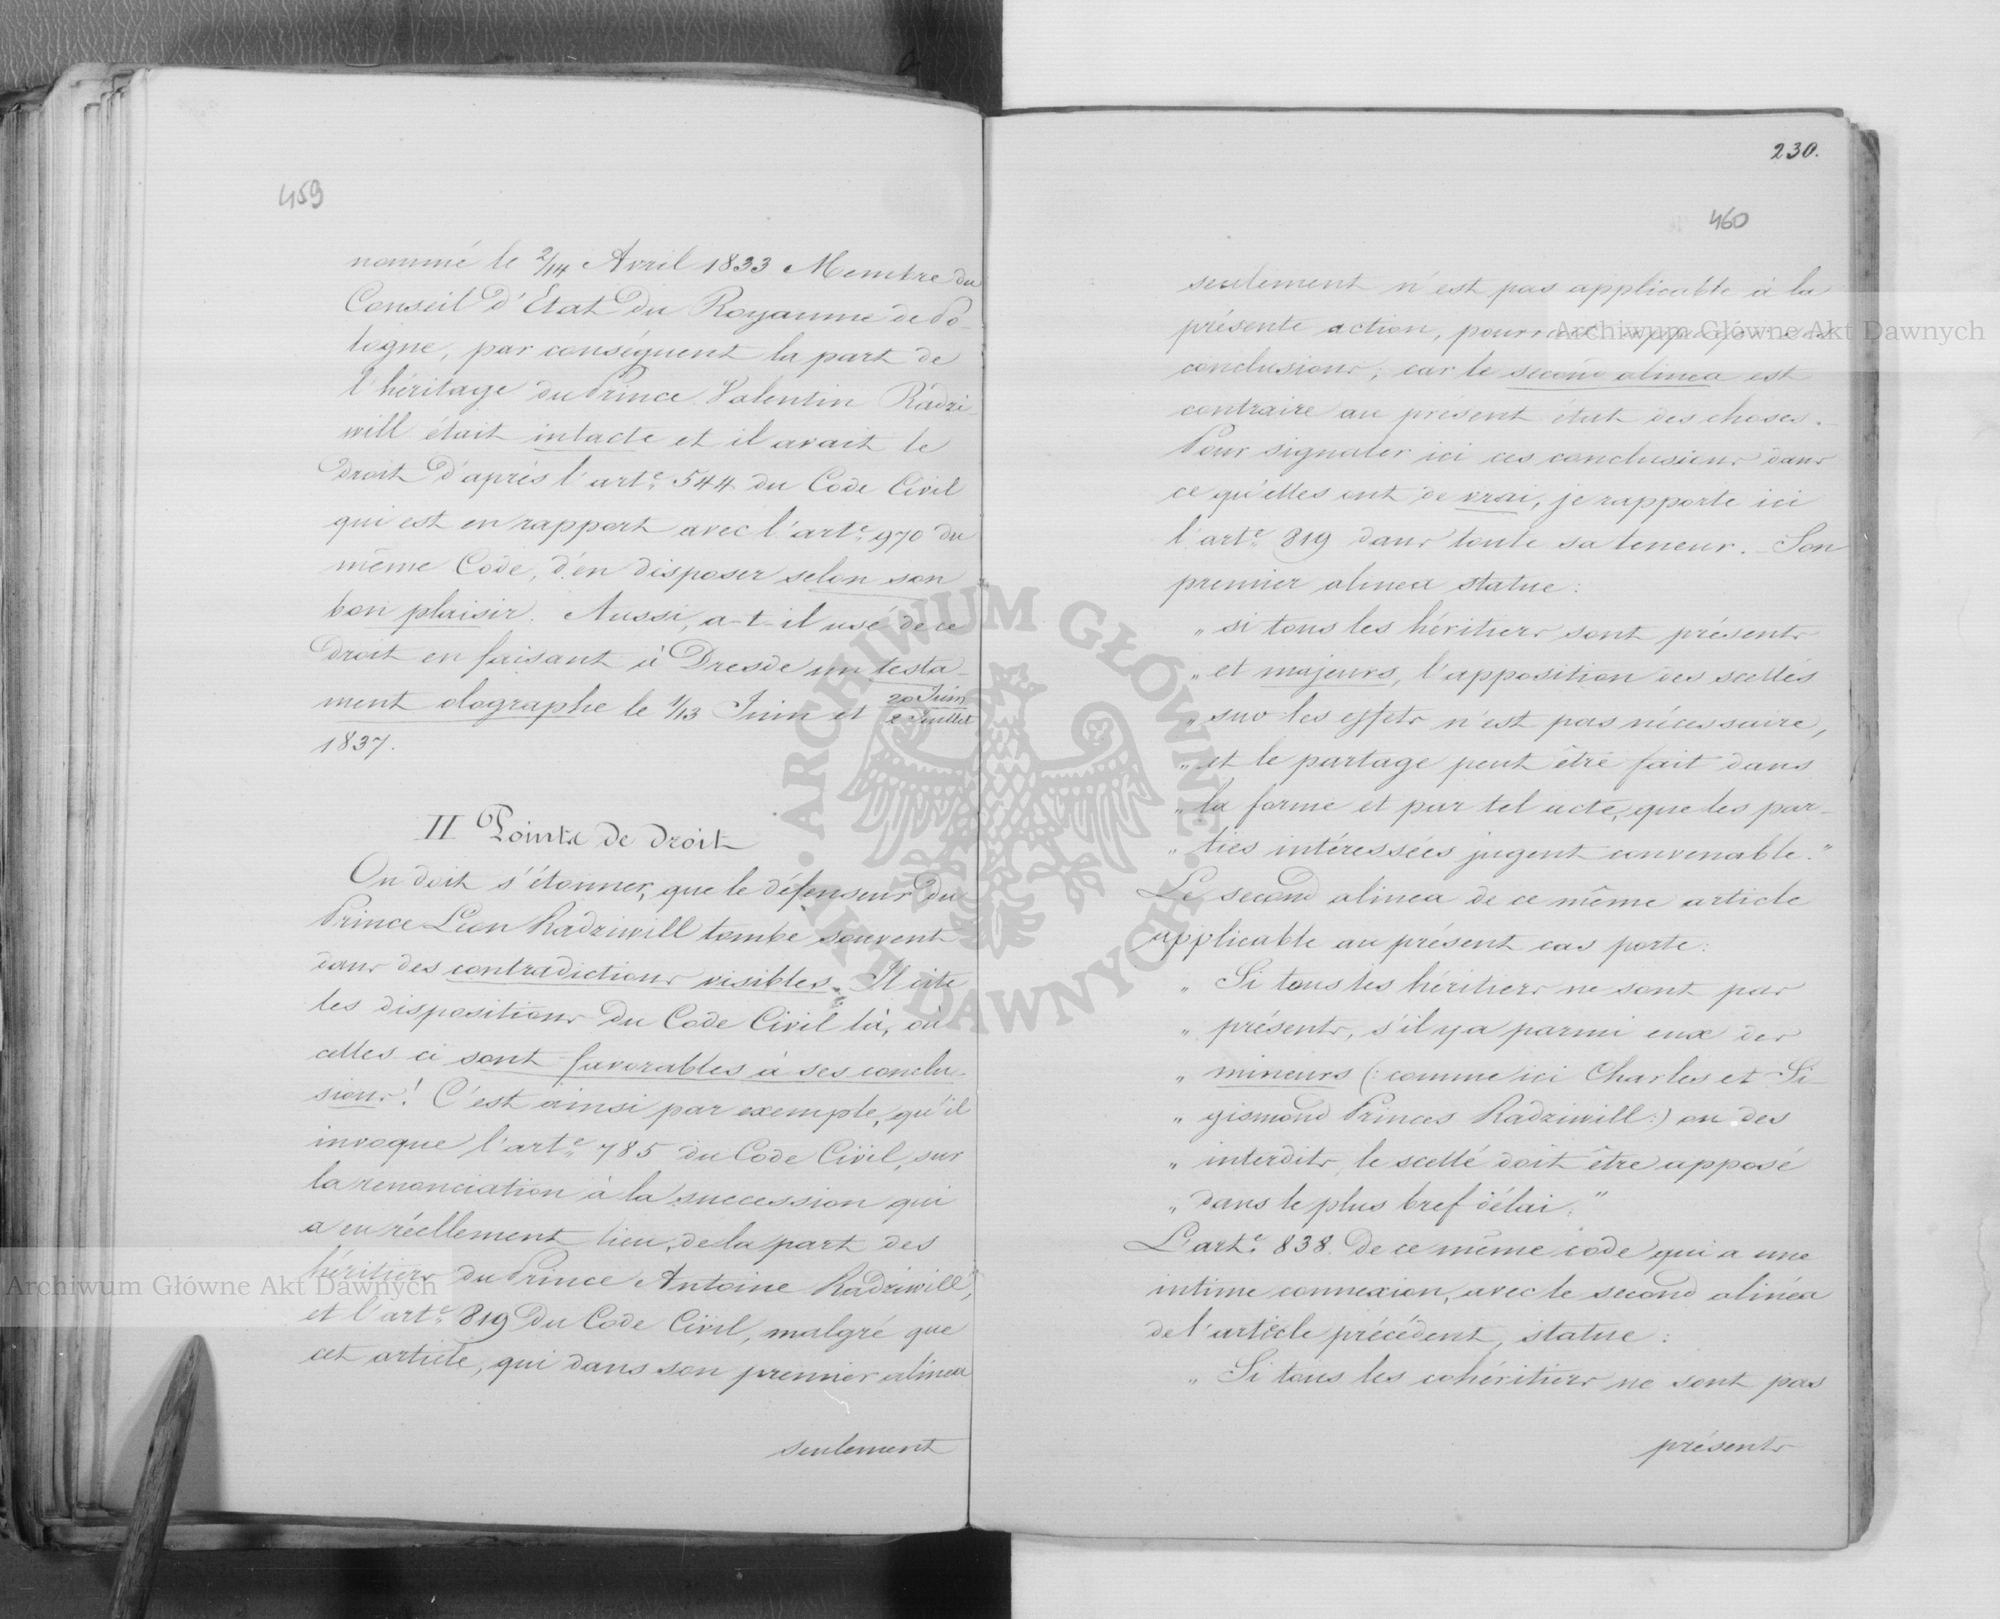 459
nommé le 2/14 Avril 1833 Membre du
Conseil d'Etat du Royaume de Po-
logne, par conséquent la part de
l'héritage du Prince Valentin Radzi-
will était intacte et il avait le
droit d'après l'art.e 544 du Code Civil
qui est en rapport avec l'art.e 970 du
même Code, d'en disposer selon son
bon plaisir. Aussi, a-t-il usé de ce
droit en faisant à Dresde un testa-
ment olographe le 1/13 Juin et 20 Juin/2 Juillet
1837.
II Points de droit
On doit s'étonner, que le défenseur du
Prince Léon Radziwill tombe souvent
dans des contradictions visibles. Il cite
les dispositions du Code Civil là, où
celles ci sont favorables à ses conclu-
sions! C'est ainsi par exemple, qu'il
invoque l'art.e 785 du Code Civil, sur
la renonciation à la succession qui
a eu réellement lieu, de la part des
héritiers du Prince Antoine Radziwill,
et l'art.e 819 du Code Civil, malgré que
cet article, qui dans son premier alinea
seulement
230.
460
seulement n'est pas applicable à la
présente action, pourrait appuyer ses
conclusions; car le second alinea est
contraire au présent état des choses.
Pour signaler ici ces conclusions dans
ce qu'elles ont de vrai, je rapporte ici
l'art.e 819 dans toute sa teneur. Son
premier alinea statue:
„ si tous les héritiers sont présents
„ et majeurs, l'apposition des scellés
„ sur les effets n'est pas nécessaire,
„ et le partage peut être fait dans
„ la forme et par tel acte, que les par-
„ ties intéressées jugent convenable."
Le second alinea de ce même article
applicable au présent cas porte:
„ Si tous les héritiers ne sont pas
„ présents, s'il y a parmi eux des
„ mineurs (: comme ici Charles et Si-
„ gismond Princes Radziwill:) ou des
„ interdits, le scellé doit être apposé
„ dans le plus bref délai."
L'art.e 838 de ce même code qui a une
intime connexion, avec le second alinéa
de l'article précédent, statue:
„ Si tous les cohéritiers ne sont pas
présents
Archiwum Główne Akt Dawnych
Archiwum Główne Akt Dawnych
ARCHIWUM GŁÓWNE · AKT DAWNYCH ·